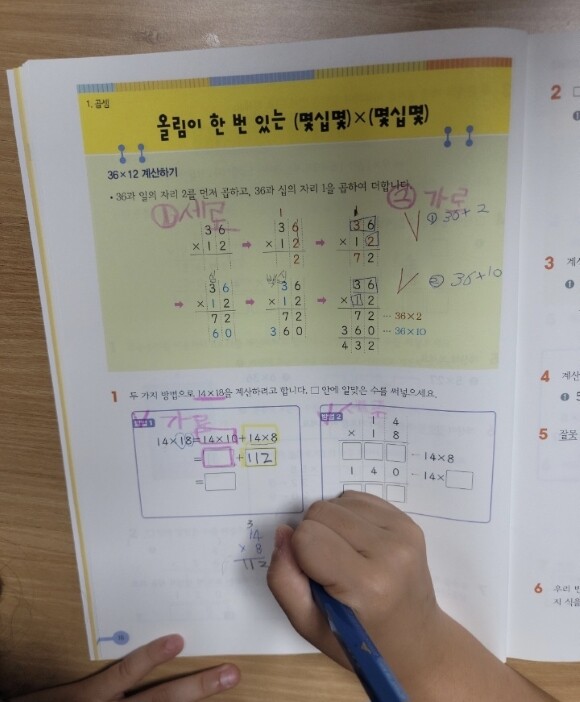 1. 곱셈
올림이 한 번 있는 (몇십몇)×(몇십몇)
36×12 계산하기
• 36과 일의 자리 2를 먼저 곱하고, 36과 십의 자리 1을 곱하여 더합니다.
① 세로
② 가로
3 6
× 1 2
➡
1
3 6
× 1 2
2
➡
3 6
× 1 2
7 2
① 36+2
➡
3 6
× 1 2
7 2
6 0
➡
3 6
× 1 2
7 2
3 6 0
➡
3 6
× 1 2
7 2 ··· 36×2
3 6 0 ··· 36×10
4 3 2
② 36+10
1 두 가지 방법으로 14×18을 계산하려고 합니다. □ 안에 알맞은 수를 써넣으세요.
방법 1 가로
14×18=14×10+14×8
=□+112
=□
방법 2 세로
1 4
× 1 8
□□□ ··· 14×8
1 4 0 ··· 14×□
□□□
3
14
× 8
112
2
3
계산
4
계산
5
잘못
6
우리 반
지 식을